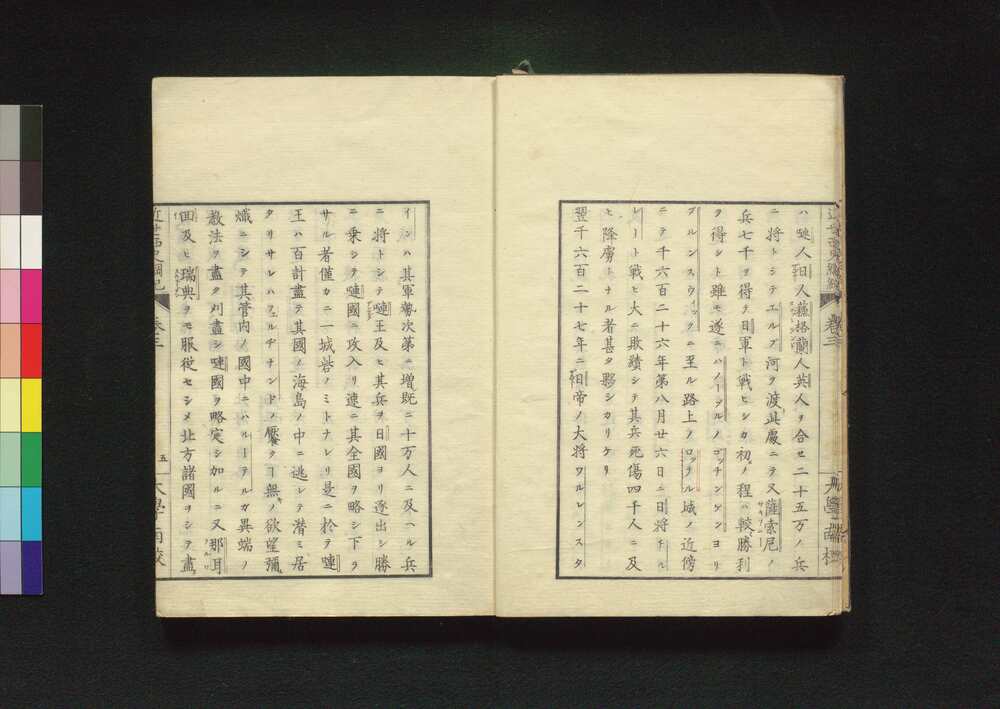 ハ嗹人日人蘇格蘭人英人ヲ合セ二十五万ノ兵
ニ將トシテエルブ河ヲ渡此處ニテ又薩索尼ノ
兵七千ヲ得テ日軍ト戰ヒシカ初ノ程ハ較勝利
ヲ得シト雖モ遂ニハノーフルノゴッチンゲンヨリ
ブルンスウイックニ至ル路上ノロッテル城ノ近傍
ニテ千六百二十六年第八月廿六日ニ日將チル
レート戰ヒ大ニ敗績シテ其兵死傷四千人ニ及
ヒ降虜トナル者甚タ夥シカリケリ
翌千六百二十七年ニ日帝ノ大將ワルレンスタ
インハ其軍勢次第ニ增既ニ十万人ニ及ヘル兵
ニ將トシテ嗹王及ヒ其兵ヲ日國ヨリ逐出シ勝
ニ乘シテ嗹國ニ攻入リ速ニ其全國ヲ略シ下ラ
サル者僅カニ一城砦ノミトナレリ是ニ於テ嗹
王ハ百計盡テ其國ノ海島ノ中ニ逃レテ潛ミ居
タリサレハフェルヂナンドノ厭クヿ無ノ欲望彌
熾ニシテ其管内ノ國中ニハルーテルガ異端ノ
敎法ヲ盡ク刈盡シ嗹國ヲ略定シ加ルニ又那耳
回及ヒ瑞典ヲモ服從セシメ北方諸國ヲシテ盡
近世西史綱紀 卷三 五 大學南校